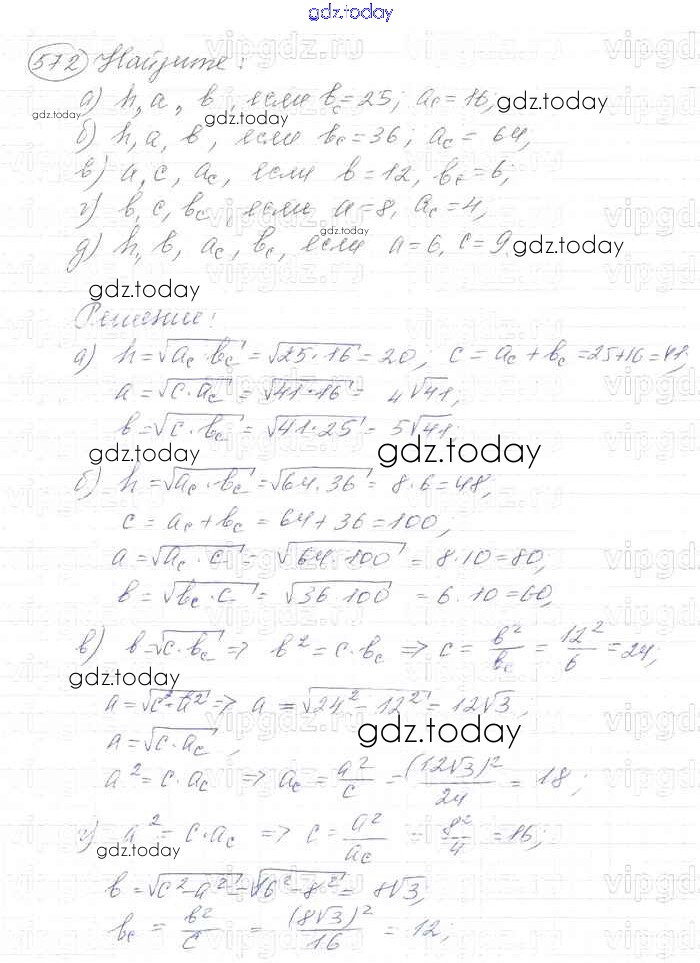 gdz.today
572 Найдите:
а) h, a, b, если bc = 25; ac = 16;
gdz.today
gdz.today
б) h, a, b, если bc = 36; ac = 64,
в) a, c, ac, если b = 12, bc = 6;
г) b, c, bc, если a = 8, ac = 4,
gdz.today
д) h, b, ac, bc, если a = 6, c = 9.
gdz.today
gdz.today
Решение:
а) h = √ac · bc = √25 · 16 = 20; c = ac + bc = 25+16 = 41,
a = √c · ac = √41 · 16 = 4√41,
b = √c · bc = √41 · 25 = 5√41,
gdz.today
gdz.today
б) h = √ac · bc = √64 · 36 = 8 · 6 = 48,
c = ac + bc = 64 + 36 = 100,
a = √ac · c = √64 · 100 = 8 · 10 = 80,
b = √bc · c = √36 · 100 = 6 · 10 = 60,
в) b = √c · bc => b² = c · bc => c = b²/bc = 12²/6 = 24;
gdz.today
a = √c² - a² => a = √24² - 12² = 12√3,
gdz.today
a = √c · ac,
a² = c · ac => ac = a²/c = (12√3)²/24 = 18;
г) a² = c · ac => c = a²/ac = 8²/4 = 16,
gdz.today
b = √c² - a² = √16² - 8² = 8√3,
bc = b²/c = (8√3)²/16 = 12;